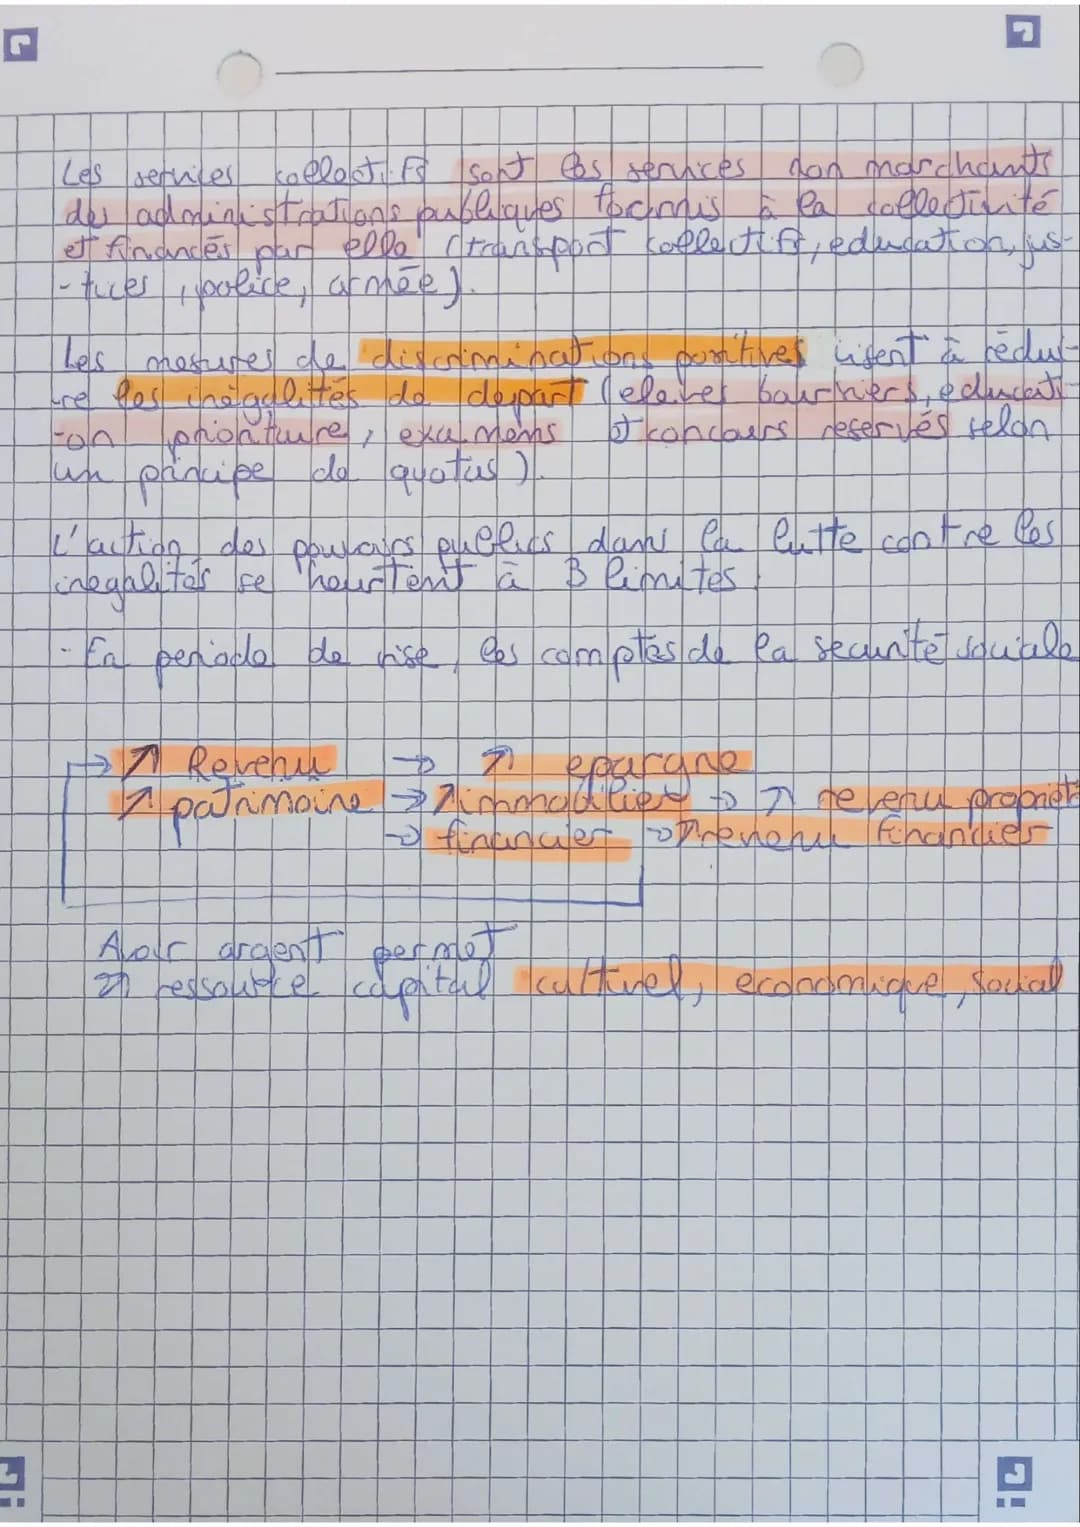 Les services collectifs sont les services non marchants
des administrations publiques fournis à la collectivité
et financés par elle (transport collectif, education, jus-
-tices, police, armée).
Les mesures de discriminations positives visent à rédui-
-re les inégalités de depart (eleves boursiers, educati-
-on prioritaire, examens et concours reservés selon
un principe de quotas).
L'action des pouvoirs publics dans la lutte contre les
inegalités se heurtent à 3 limites
- En periode de crise, les comptes de la securité sociale
→ ↗ Revenu → ↗ epargne
↗ patrimoine → ↗ immobilier → ↗ revenu propriét
→ financier → ↗ revenu financier
Avoir argent permet
↗ ressource capital culturel, economique, social